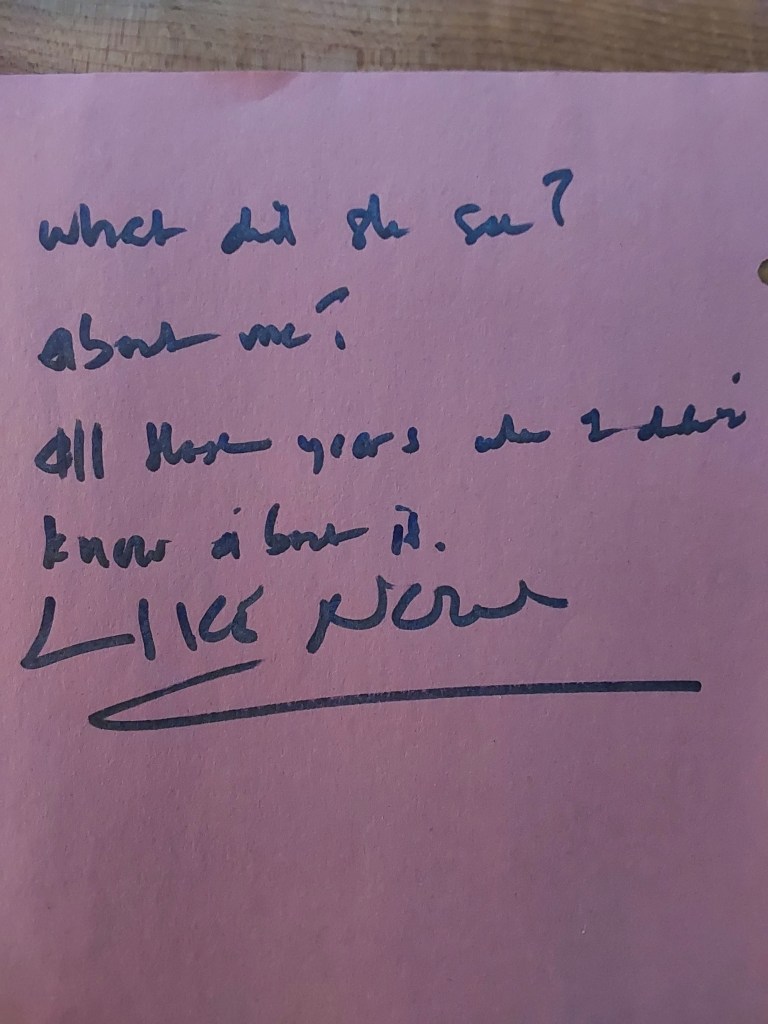 what did she see?
About me?
All those years when I didn't
know about it.
LIKE NOW